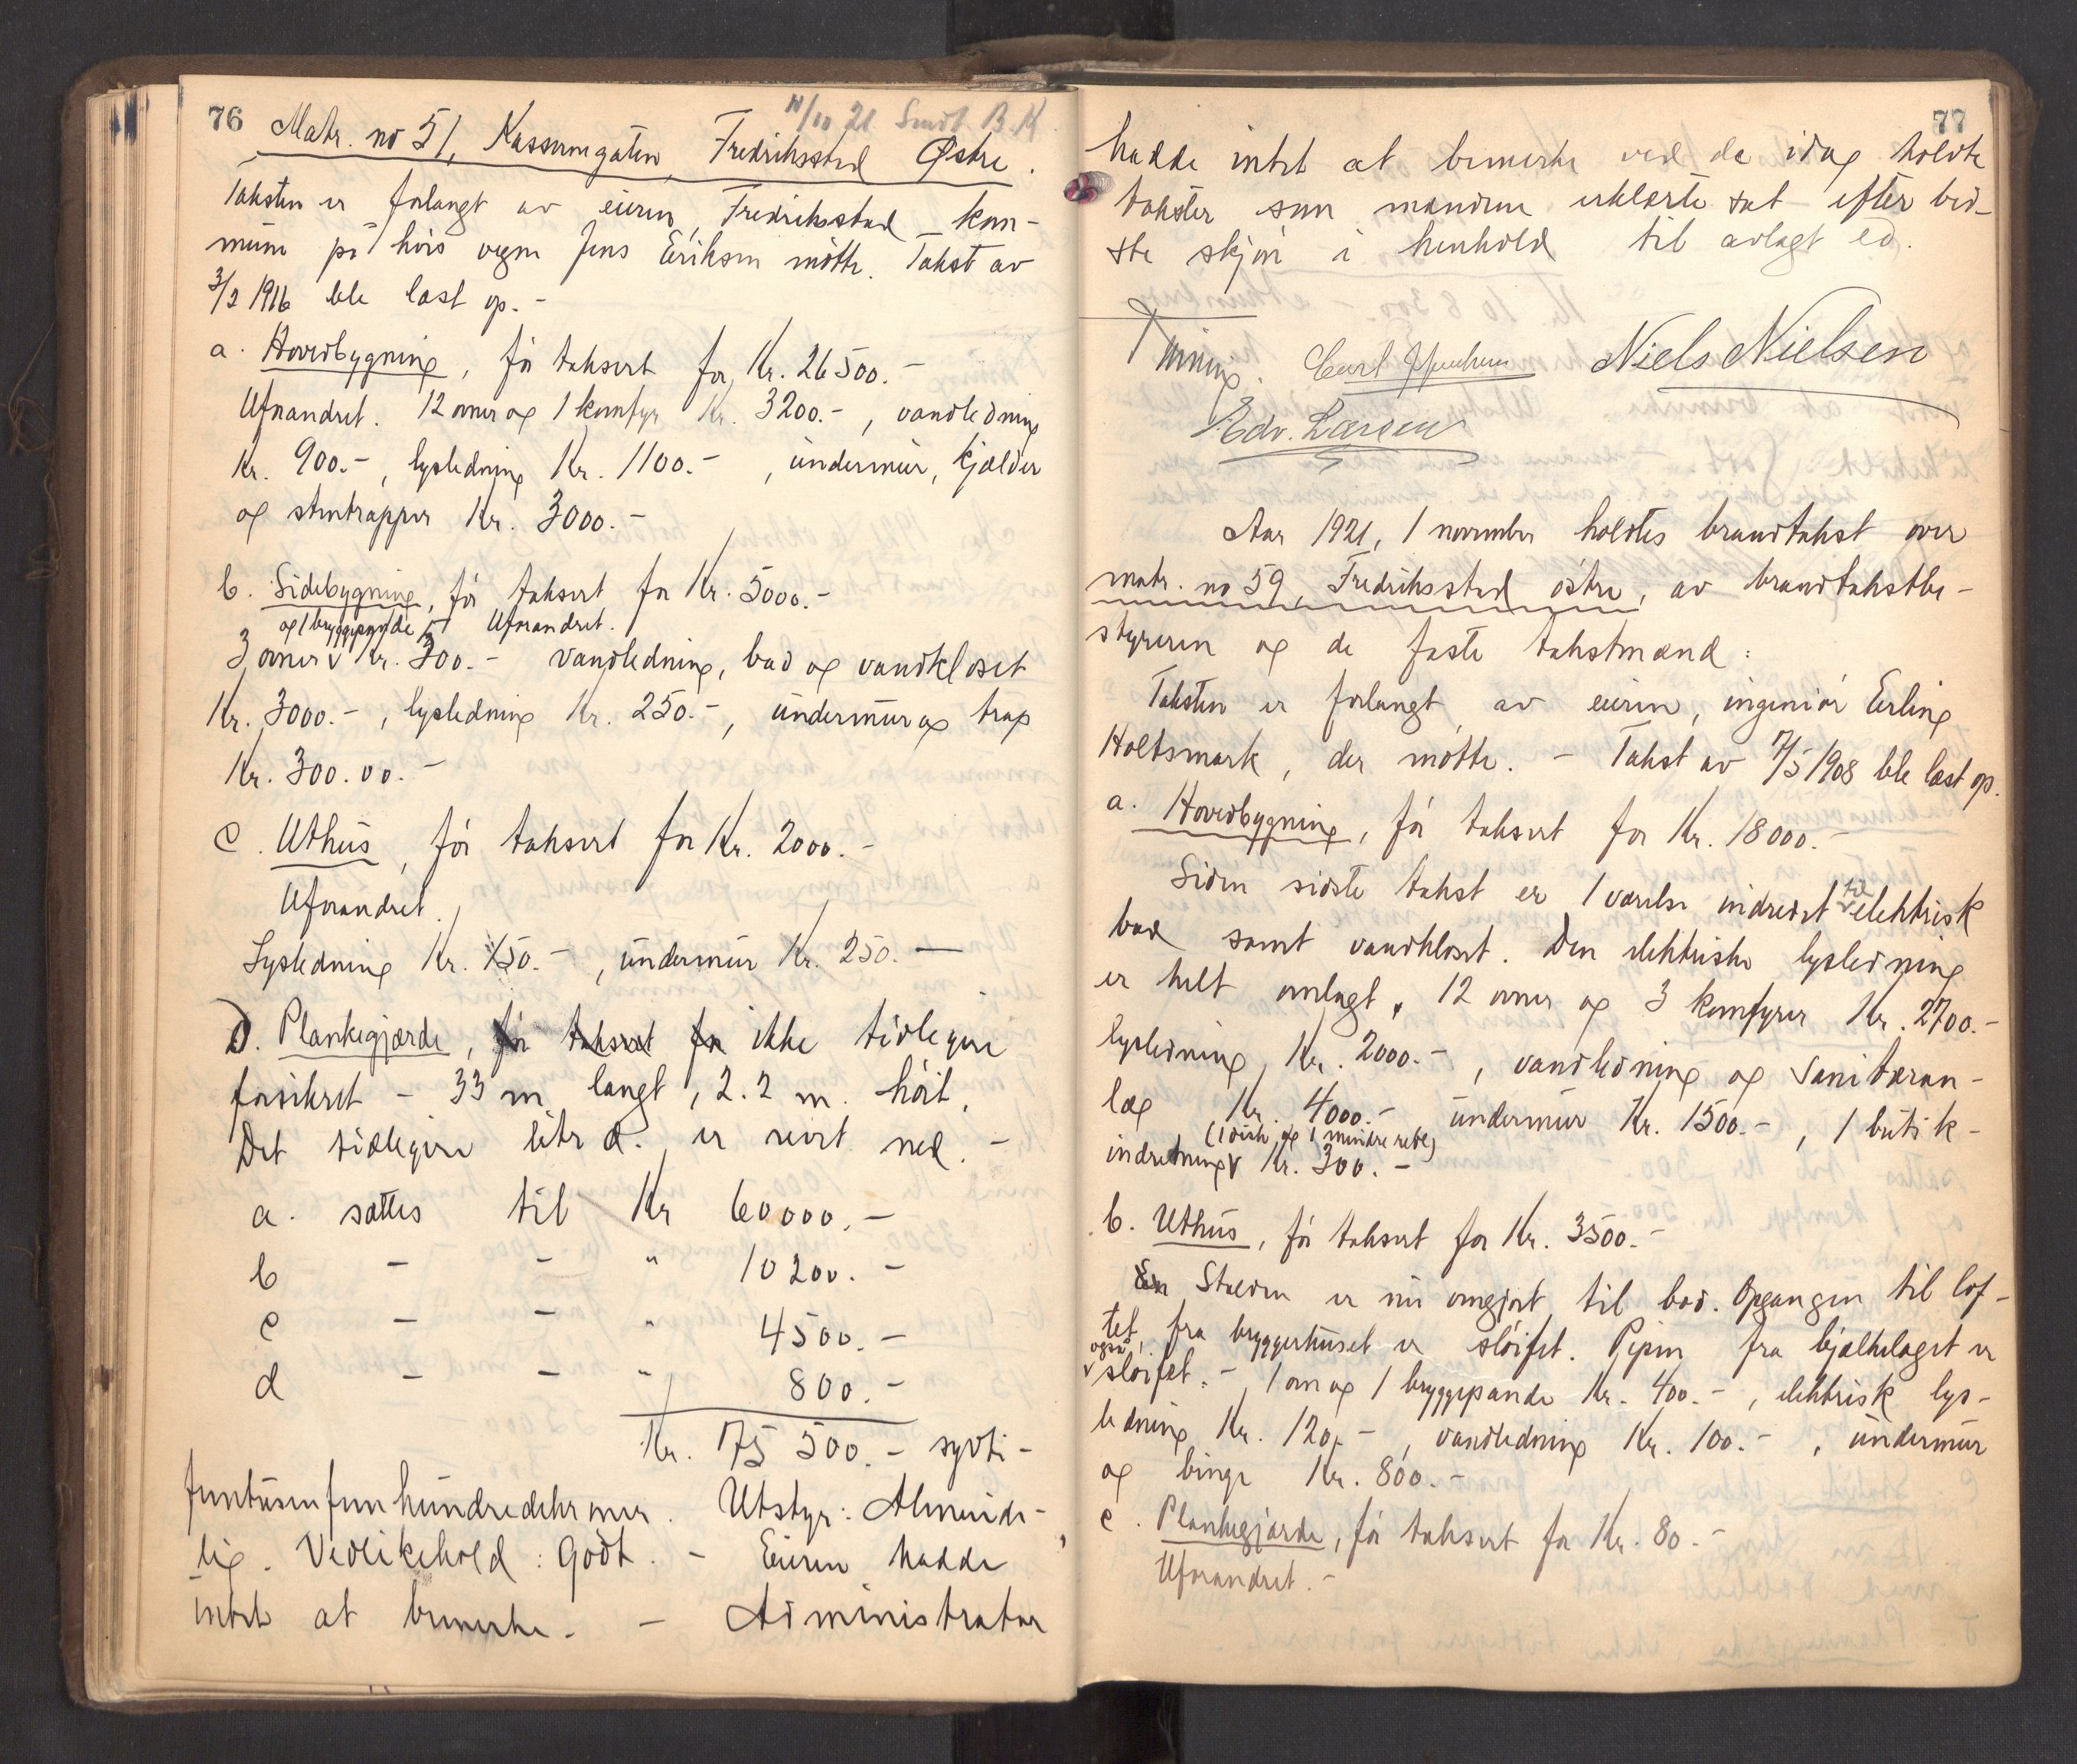 76
11/10 21 Sendt B.K
Matr. no 51, Kasernegaten, Fredriksstad Østre.
Taksten er forlangt av eieren, Fredriksstad kom-
mune på hvis vegne Jens Eriksen mötte. Takst av
3/2 1916 ble læst op. -
a. Hovedbygning, för taksert for Kr. 26500.-
Uforandret. 12 ovner og 1 komfyr Kr. 3200.-, vandledning
Kr. 900.-, lysledning Kr. 1100.-, undermur, kjælder
og stentrapper Kr. 3000.-
b. Sidebygning, för taksert for Kr. 5000.-
og 1 bryggepande Uforandret.
3 ovner v Kr. 300.- vandledning, bad og vandkloset
Kr. 3000.-, lysledning Kr. 250.-, undermur og trap
Kr. 300.00.-
c. Uthus, för taksert for Kr. 2000.-
Uforandret.
Lysledning Kr. 150.-, undermur Kr. 250.-
d. Plankegjærde, för taksert for ikke tidligere
forsikret - 33 m langt, 2.2 m. höit.
Det tidligere litr d. er revet ned. -
a. sættes til Kr 60000.-
b - - " 10200.-
c - - " 4500.-
d - - " 800.-
Kr. 75 500.- sytti-
femtusenfemhundredekroner. Utstyr: Alminde-
lig. Vedlikehold: Godt. - Eieren hadde
intet at bemerke. - Administrator
77
hadde intet at bemerke ved de idag holdte
takster som mændene erklærte sat efter bed-
ste skjön i henhold til avlagt ed.
Carl Niels Nielsen
Edv. Larsen
Aar 1921, 1 november holdtes brandtakst over
matr. no 59, Fredriksstad östre, av brandtakstbe-
styreren og de faste takstmænd:
Taksten er forlangt av eieren, ingeniör Erling
Holtsmark, der mötte. - Takst av 7/5 1908 ble læst op.
a. Hovedbygning, för taksert for Kr. 18000.-
Siden sidste takst er 1 værelse indredet til elektrisk
bad samt vandkloset. Den elektriske lysledning
er helt omlagt. 12 ovner og 3 komfyrer Kr. 2700.-
lysledning Kr. 2000.-, vandledning og sanitæran-
læg Kr. 4000.- undermur Kr. 1500.-, 1 butik-
(1 disk og 1 mindre reol)
indretning v Kr. 300.-
b. Uthus, för taksert for Kr. 3500.-
En Stalden er nu omgjort til bod. Opgangen til lof-
tet, fra bryggerhuset er slöifet. Pipen fra bjælkelaget er
også
v slöifet. - 1 ovn og 1 bryggepande Kr. 400.-, elektrisk lys-
ledning Kr. 120.-, vandledning Kr. 100.-, undermur
og binge Kr. 800.-
c. Plankegjærde, för taksert for Kr. 80.-
Uforandret. -